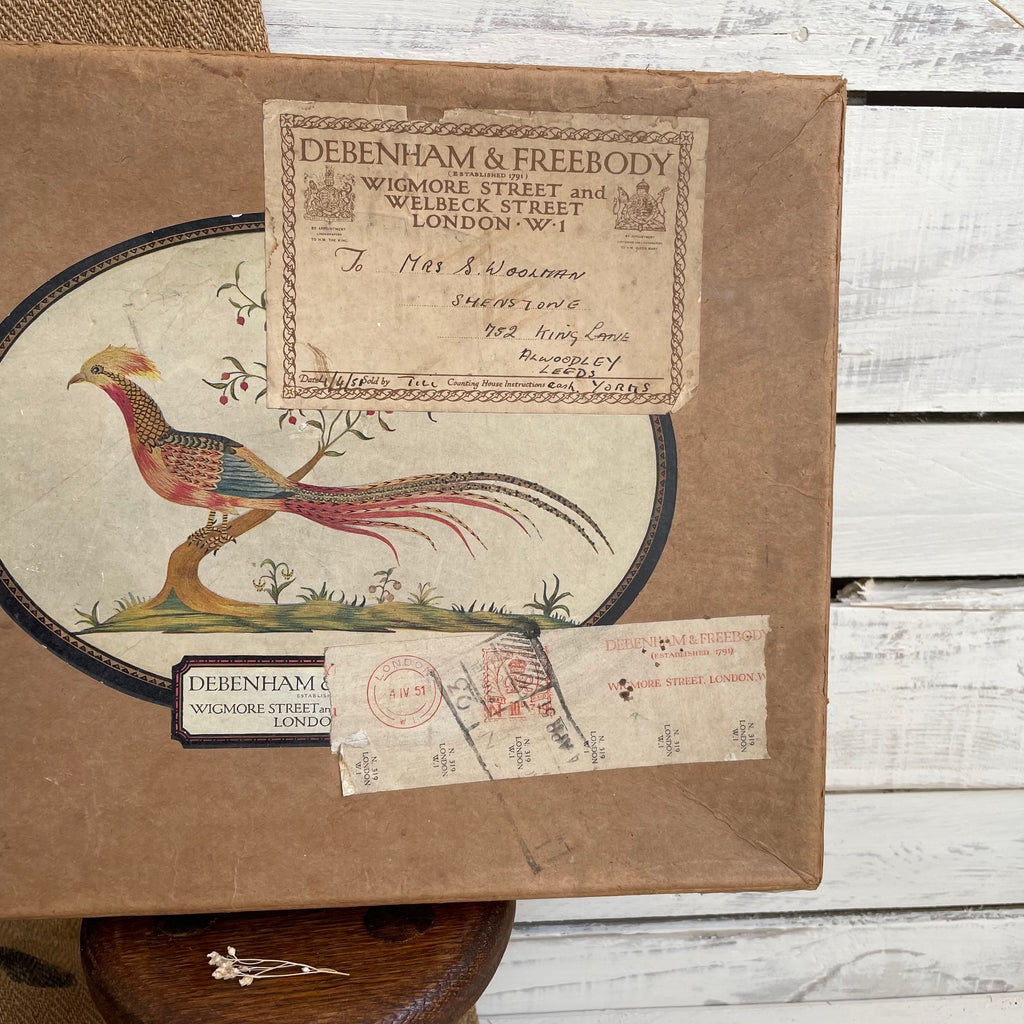 DEBENHAM & FREEBODY
(ESTABLISHED 1791)
WIGMORE STREET and
WELBECK STREET
LONDON·W·1
BY APPOINTMENT
TO H.M. THE KING
BY APPOINTMENT
TO H.M. QUEEN MARY
To Mrs S. WOOLMAN
SHENSTONE
752 KING LANE
ALWOODLEY
LEEDS
Date 4/4/51 Sold by Till Counting House Instructions Cash YORKS
DEBENHAM &
ESTABLIS
WIGMORE STREET an
LONDO
LONDON
4 IV 51
W1
DEBENHAM & FREEBOD
(ESTABLISHED 1791)
WIGMORE STREET, LONDON, W
N. 319
LONDON
W.1
N. 319
LONDON
W.1
N. 319
LONDON
W.1
N. 319
LONDON
W.1
N. 319
LONDON
W.1
N. 319
LONDON
W.1